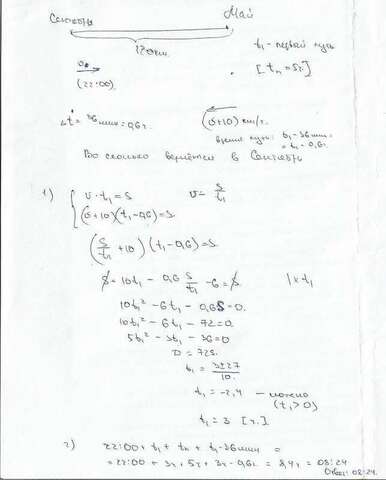 Сентябрь Май
120км.
t₁ - первый путь
[tп = 5ч.]
υ
(22:00)
Δt = 36мин = 0,6ч.
(υ+10) км/ч.
время пути: t₁ - 36мин = t₁ - 0,6ч.
Во сколько вернётся в Сентябрь
1) { υ · t₁ = S υ = S/t₁
(υ+10)(t₁-0,6) = S.
(S/t₁ + 10)(t₁ - 0,6) = S
S + 10t₁ - 0,6 S/t₁ - 6 = S. | × t₁
10t₁² - 6t₁ - 0,6S = 0.
10t₁² - 6t₁ - 72 = 0
5t₁² - 3t₁ - 36 = 0
D = 729.
t₁ = 3±27/10.
t₁ = -2,4 - (t₁ > 0)
t₁ = 3 [ч.]
2) 22:00 + t₁ + tп + t₁ - 36мин =
= 22:00 + 3ч + 5ч + 3ч - 0,6ч = 8,4ч = 08:24
Ответ: 08:24.